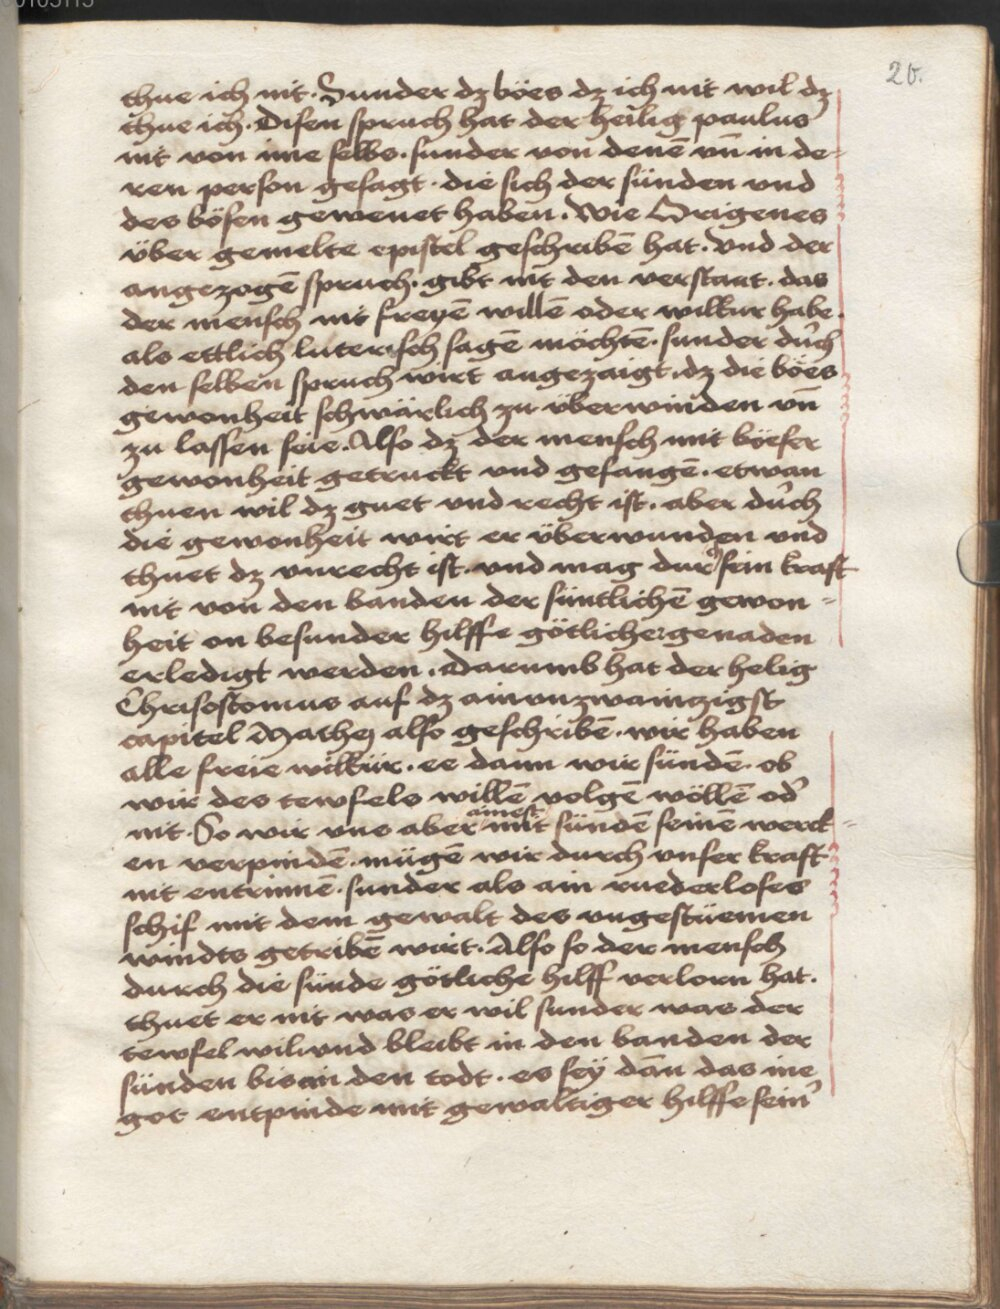 20.
thue ich nit. Sunder dz böes dz ich nit wil dz
thue ich. Disen spruch hat der heilig paulus
nit von ime selbs. sunder von denē vn̄ in de-
ren person gesagt. die sich der sünden und
des bösen gewenet haben. Wie Origenes
über gemelte epistel geschribē hat. Vnd der
angezogē spruch. gibt nit den verstant. das
der mensch nit freyē willē oder wilkur habe.
als ettlich luterisch sagē möchtē. sunder durch
den selben spruch wirt angezaigt. dz die böes
gewonheit schwärlich zu überwinden vn̄
zu lassen seie. Also dz der mensch mit böeser
gewonheit getruckt vnd gefangē. etwan
thuen wil dz guet vnd recht ist. aber durch
die gewonheit wirt er überwunden vnd
thuet dz vnrecht ist. vnd mag durch sein kraft
nit von den banden der süntlichē gewon-
heit on besunder hilffe götlicher genaden
erledigt werden. Darumb hat der helig
Chrisostomus auf dz ainunzwainzigst
capitel Mathej also geschribē. wir haben
alle freie wilkür. ee dann wir sündē. ob
wir des tewfels willē volgē wöllē od'
nit. So wir vns aber ainest mit sündē seinē werck-
en verpindē. mügē wir durch vnser kraft
nit entrinnē. sunder als ain ruederloses
schif mit dem gewalt des vngestüemen
windts getribē wirt. Also so der mensch
durch die sünde götliche hilff verlorn hat.
thuet er nit was er wil sunder was der
tewfel wil. vnd bleibt in den banden der
sünden bis in den todt. es sey dan̄ das ine
got entpinde mit gewaltiger hilffe sein'